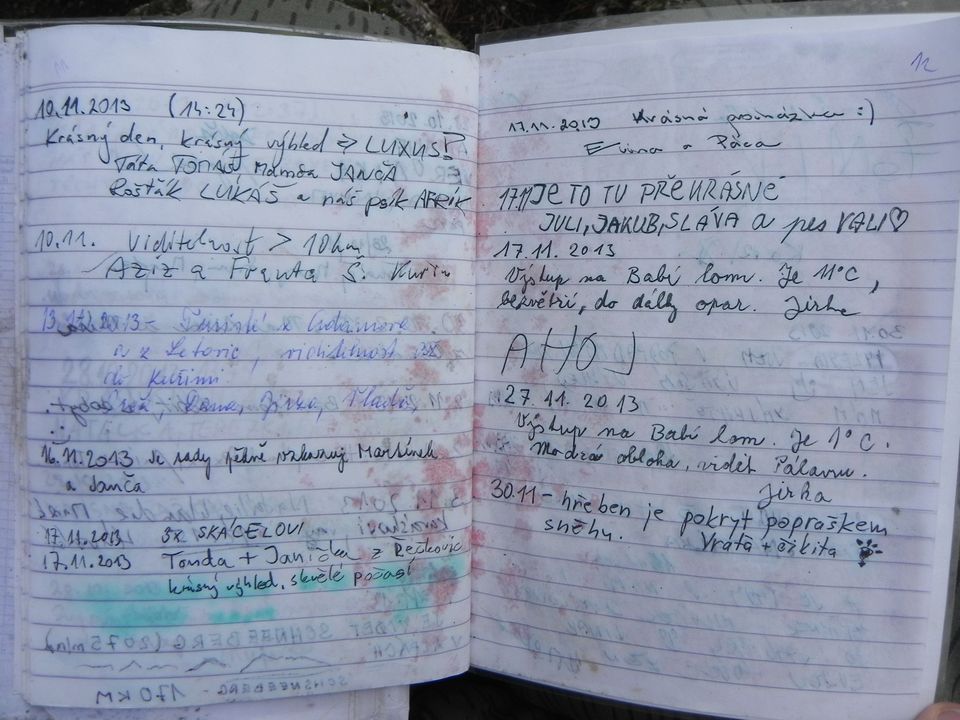 10.11.2013 (14:24)
Krásný den, krásný výhled => LUXUS!
Táta TOMÁŠ, Mamča JANČA
Rošťák LUKÁŠ a náš psík
10.11. Viditelnost > 10km
Aziz a Franta Š. Kuřim
2013 - Turisté z Adamova
a z Letovic, viditelnost
do Kuřimi.
Dana, Jirka, Vláďa
16.11.2013 Je tady pěkně vzkazují Martínek
a Janča
17.11.2013 3x SKÁCELOVI
17.11.2013 Tonda + Janička z Řečkovic
krásný výhled, skvělé počasí
JE VIDĚT SCHNEEBERG (2075 m/n.m)
SCHSNEEBERG - 170 KM
12
17.11.2013 Krásná procházka :)
a
17.11 JE TO TU PŘEKRÁSNÉ
JULI, JAKUB, SLÁVA a pes VALI ♡
17.11.2013
Výstup na Babí lom. Je 11°C,
bezvětří, do dálky opar. Jirka
AHOJ
27.11.2013
Výstup na Babí lom. Je 1°C.
Modrá obloha, vidět Pálavu.
Jirka
30.11 - hřeben je pokryt popraškem
sněhu. Vráťa +